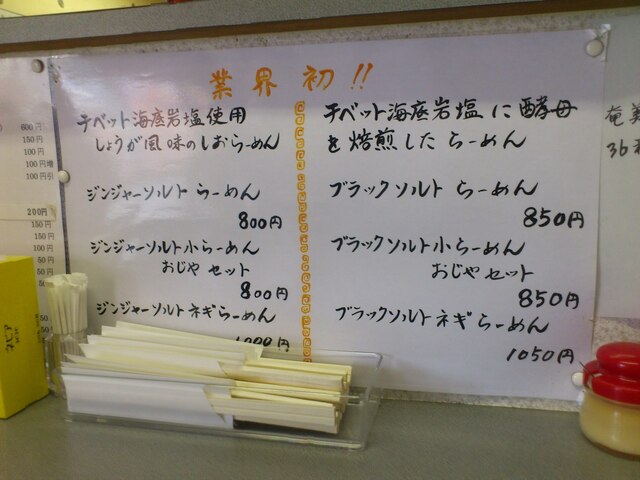 業界初!!
チベット海底岩塩使用
しょうが風味のしおらーめん
ジンジャーソルト らーめん
800円
ジンジャーソルト小らーめん
おじや セット
800円
ジンジャーソルト ネギらーめん
チベット海底岩塩に酵母
を焙煎した らーめん
ブラックソルト らーめん
850円
ブラックソルト小らーめん
おじや セット
850円
ブラックソルト ネギらーめん
1050円
600円
150円
100円
100円増
100円引
200円
150円
150円
100円
50円